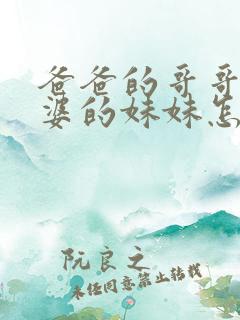 爸爸的哥哥
婆的妹妹怎
阮良之
未经同意禁止转载